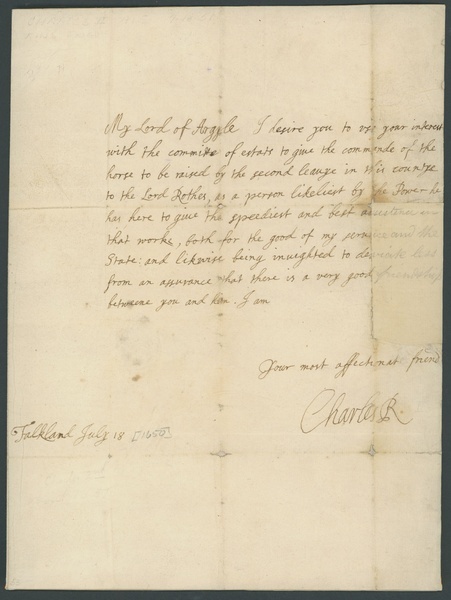 My Lord of Argyle I desire you to use your interest
with the committe of estats to give the commande of the
horse to be raised by the second leauge in this countye
to the Lord Rothes, as a person likeliest by the Power he
has here to give the speediest and best
that works, both for the good of my service and the
State: and likwise being invighted to this
from an assurance that there is a very good friendship
betweene you and him. I am
Your most affectionate friend
Charles R.
Falkland July 18 [1650]